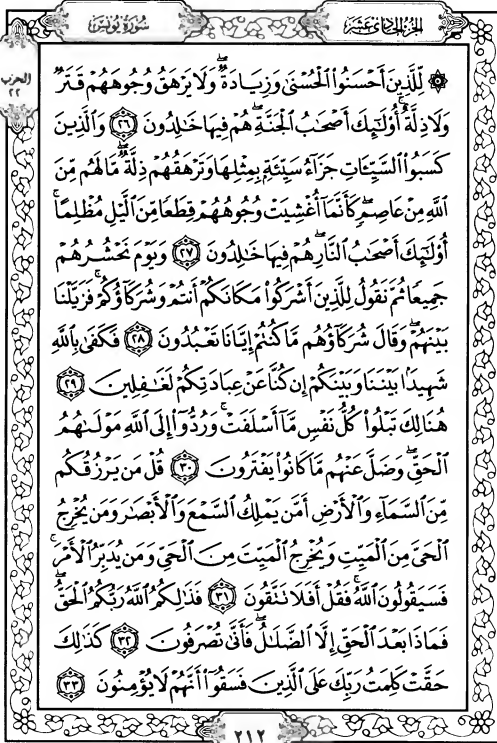 الجزء الحادي عشر
سورة يونس
الحزب
٢٢
۞ لِّلَّذِينَ أَحْسَنُوا۟ ٱلْحُسْنَىٰ وَزِيَادَةٌ ۖ وَلَا يَرْهَقُ وُجُوهَهُمْ قَتَرٌ
وَلَا ذِلَّةٌ ۚ أُو۟لَٰٓئِكَ أَصْحَٰبُ ٱلْجَنَّةِ ۖ هُمْ فِيهَا خَٰلِدُونَ ٢٦ وَٱلَّذِينَ
كَسَبُوا۟ ٱلسَّيِّـَٔاتِ جَزَآءُ سَيِّئَةٍۭ بِمِثْلِهَا وَتَرْهَقُهُمْ ذِلَّةٌ ۖ مَّا لَهُم مِّنَ
ٱللَّهِ مِنْ عَاصِمٍ ۖ كَأَنَّمَآ أُغْشِيَتْ وُجُوهُهُمْ قِطَعًا مِّنَ ٱلَّيْلِ مُظْلِمًا ۚ
أُو۟لَٰٓئِكَ أَصْحَٰبُ ٱلنَّارِ ۖ هُمْ فِيهَا خَٰلِدُونَ ٢٧ وَيَوْمَ نَحْشُرُهُمْ
جَمِيعًا ثُمَّ نَقُولُ لِلَّذِينَ أَشْرَكُوا۟ مَكَانَكُمْ أَنتُمْ وَشُرَكَآؤُكُمْ ۚ فَزَيَّلْنَا
بَيْنَهُمْ ۖ وَقَالَ شُرَكَآؤُهُم مَّا كُنتُمْ إِيَّانَا تَعْبُدُونَ ٢٨ فَكَفَىٰ بِٱللَّهِ
شَهِيدًۢا بَيْنَنَا وَبَيْنَكُمْ إِن كُنَّا عَنْ عِبَادَتِكُمْ لَغَٰفِلِينَ ٢٩
هُنَالِكَ تَبْلُوا۟ كُلُّ نَفْسٍ مَّآ أَسْلَفَتْ ۚ وَرُدُّوٓا۟ إِلَى ٱللَّهِ مَوْلَىٰهُمُ
ٱلْحَقِّ ۖ وَضَلَّ عَنْهُم مَّا كَانُوا۟ يَفْتَرُونَ ٣٠ قُلْ مَن يَرْزُقُكُم
مِّنَ ٱلسَّمَآءِ وَٱلْأَرْضِ أَمَّن يَمْلِكُ ٱلسَّمْعَ وَٱلْأَبْصَٰرَ وَمَن يُخْرِجُ
ٱلْحَىَّ مِنَ ٱلْمَيِّتِ وَيُخْرِجُ ٱلْمَيِّتَ مِنَ ٱلْحَىِّ وَمَن يُدَبِّرُ ٱلْأَمْرَ ۚ
فَسَيَقُولُونَ ٱللَّهُ ۚ فَقُلْ أَفَلَا تَتَّقُونَ ٣١ فَذَٰلِكُمُ ٱللَّهُ رَبُّكُمُ ٱلْحَقُّ ۖ
فَمَاذَا بَعْدَ ٱلْحَقِّ إِلَّا ٱلضَّلَٰلُ ۖ فَأَنَّىٰ تُصْرَفُونَ ٣٢ كَذَٰلِكَ
حَقَّتْ كَلِمَتُ رَبِّكَ عَلَى ٱلَّذِينَ فَسَقُوٓا۟ أَنَّهُمْ لَا يُؤْمِنُونَ ٣٣
٢١٢